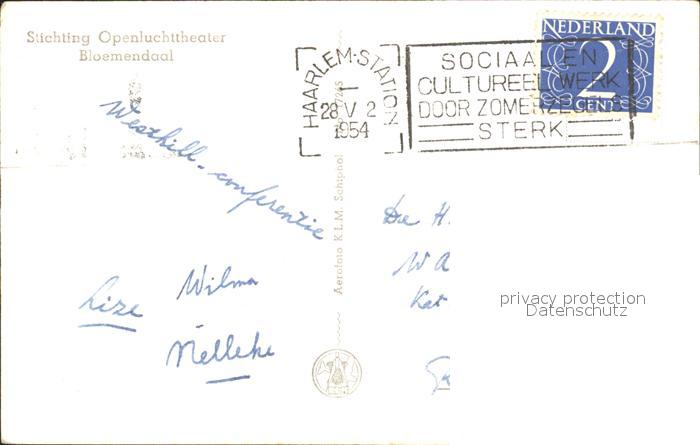 Stichting Openluchttheater
Bloemendaal
HAARLEM-STATION
28 V 2
1954
SOCIAAL EN
CULTUREEL WERK
DOOR ZOMERZEGELS
STERK
NEDERLAND
2
CENT
Westhill-conferentie
Lize
Wilma
Nelleke
Aerofoto K.L.M. Schiphol
Die H.
W A
Kat
privacy protection
Datenschutz